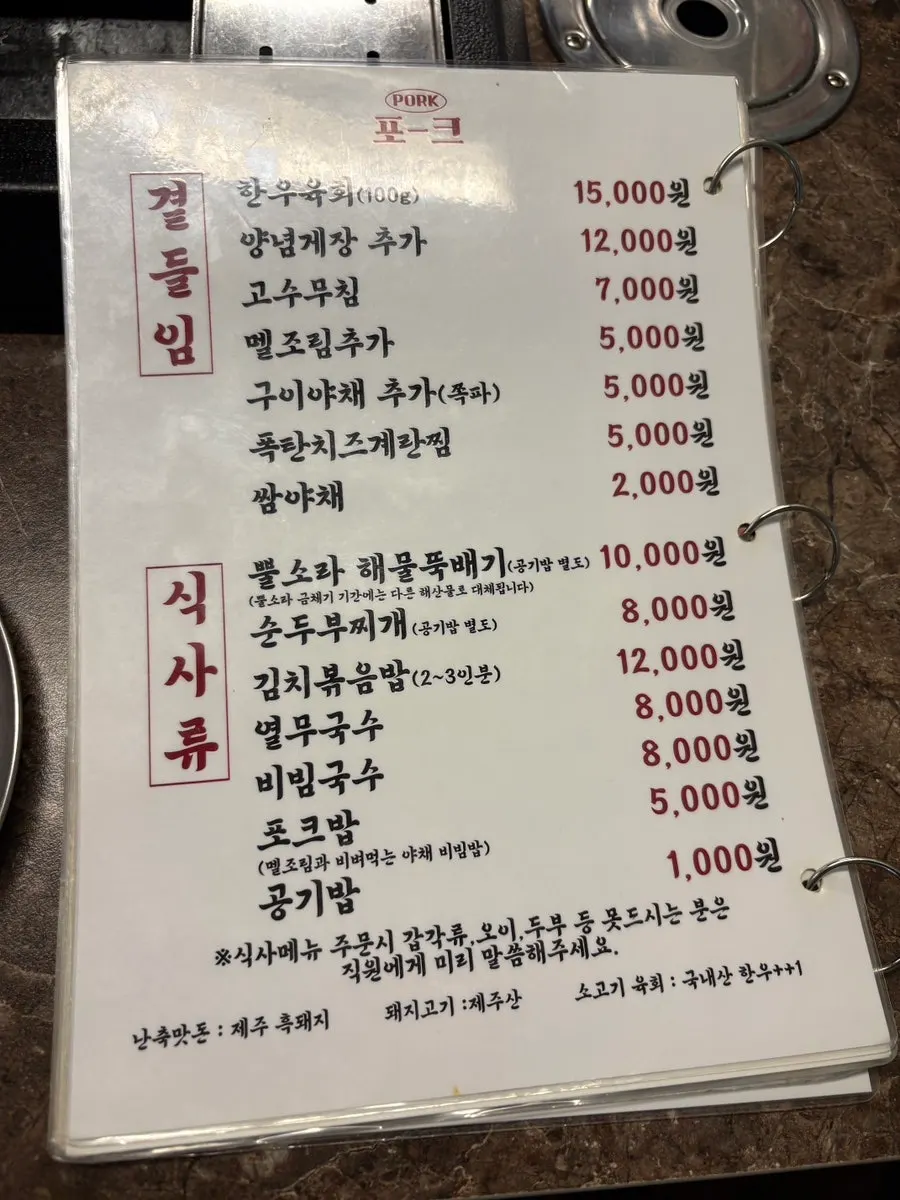 PORK
포크
곁들임
한우육회(100g) 15,000원
양념게장 추가 12,000원
고수무침 7,000원
멜조림추가 5,000원
구이야채 추가(쪽파) 5,000원
폭탄치즈계란찜 5,000원
쌈야채 2,000원
식사류
뿔소라 해물뚝배기(공기밥 별도) 10,000원
(뿔소라 금채기 기간에는 다른 해산물로 대체됩니다)
순두부찌개(공기밥 별도) 8,000원
김치볶음밥(2~3인분) 12,000원
열무국수 8,000원
비빔국수 8,000원
포크밥 5,000원
(멜조림과 비벼먹는 야채 비빔밥)
공기밥 1,000원
※식사메뉴 주문시 갑각류,오이,두부 등 못드시는 분은
직원에게 미리 말씀해주세요.
난축맛돈 : 제주 흑돼지 돼지고기 :제주산 소고기 육회 : 국내산 한우++1